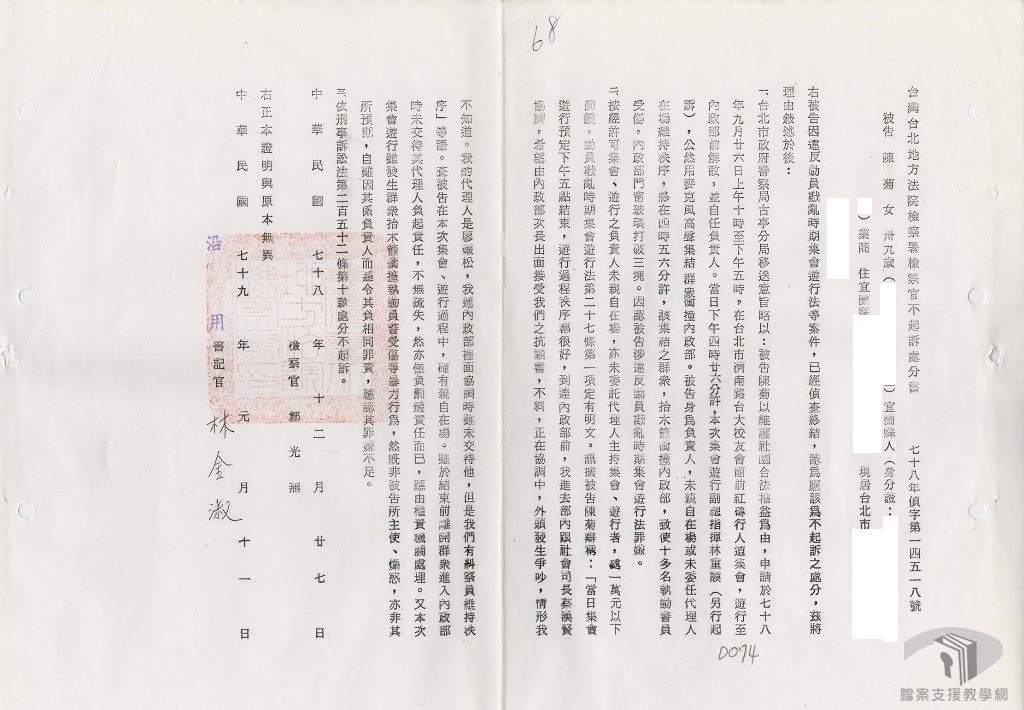 68
台灣台北地方法院檢察署檢察官不起訴處分書 七十八年偵字第一四五一八號
被告 陳菊 女 卅九歲( )宜蘭縣人(身分證:
)業商 住宜蘭縣 現居台北市
右被告因違反動員戡亂時期集會遊行法等案件,已經偵查終結,認為應該為不起訴之處分,茲將
理由敘述於後:
一、台北市政府警察局古亭分局移送意旨略以:被告陳菊以維護社團合法權益為由,申請於七十八
年九月廿六日上午十時至下午五時,在台北市濟南路台大校友會館前紅磚行人道集會,遊行至
內政部前解散,並自任負責人。當日下午四時廿六分許,本次集會遊行副總指揮林重謨(另行起
訴),公然用麥克風高聲集結群眾衝撞內政部。被告身為負責人,未親自在場或未委任代理人
在場維持秩序,終在四時五六分許,該集結之群眾,抬木箍衝撞內政部,致使十多名執勤警員
受傷。內政部門窗玻璃打破三塊。因認被告涉違反動員戡亂時期集會遊行法罪嫌。
二、按經許可集會、遊行之負責人未親自在場,亦未委託代理人主持集會、遊行者,處一萬元以下
罰鍰。動員戡亂時期集會遊行法第二十七條第一項定有明文。訊據被告陳菊辯稱:「當日集會
遊行預定下午五點結束,遊行過程秩序都很好,到達內政部前,我進去部內跟社會司長蔡漢賢
協調,希望由內政部次長出面接受我們之抗議書,不料,正在協調中,外頭發生爭吵,情形我
不知道。我的代理人是廖耀松,我進內政部裡面協調時雖未交待他,但是我們有糾察員維持秩
序」等語。查被告在本次集會、遊行過程中,確有親自在場。雖於結束前離開群眾進入內政部
時未交待其代理人負起責任,不無疏失,然亦僅負罰鍰責任而已,應由權責機關處理。又本次
集會遊行雖發生群眾抬木箍衝撞執勤員警受傷等暴力行為,然既非被告所主使、煽惑,亦非其
所預期,自難因其係負責人而遽令其負相同罪責,應認其罪嫌不足。
三、依刑事訴訟法第二百五十二條第十款處分不起訴。
中華民國七十八年十二月廿七日
檢察官 鄭光
右正本證明與原本無異
中華民國七十九年元月十一日
沿用
書記官 林金淑
D074
檔案支援教學網